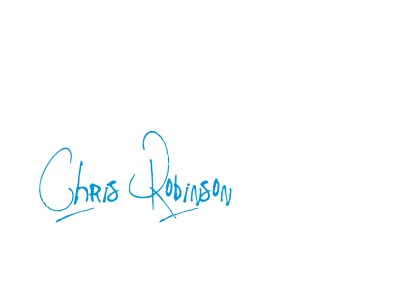 Chris Robinson